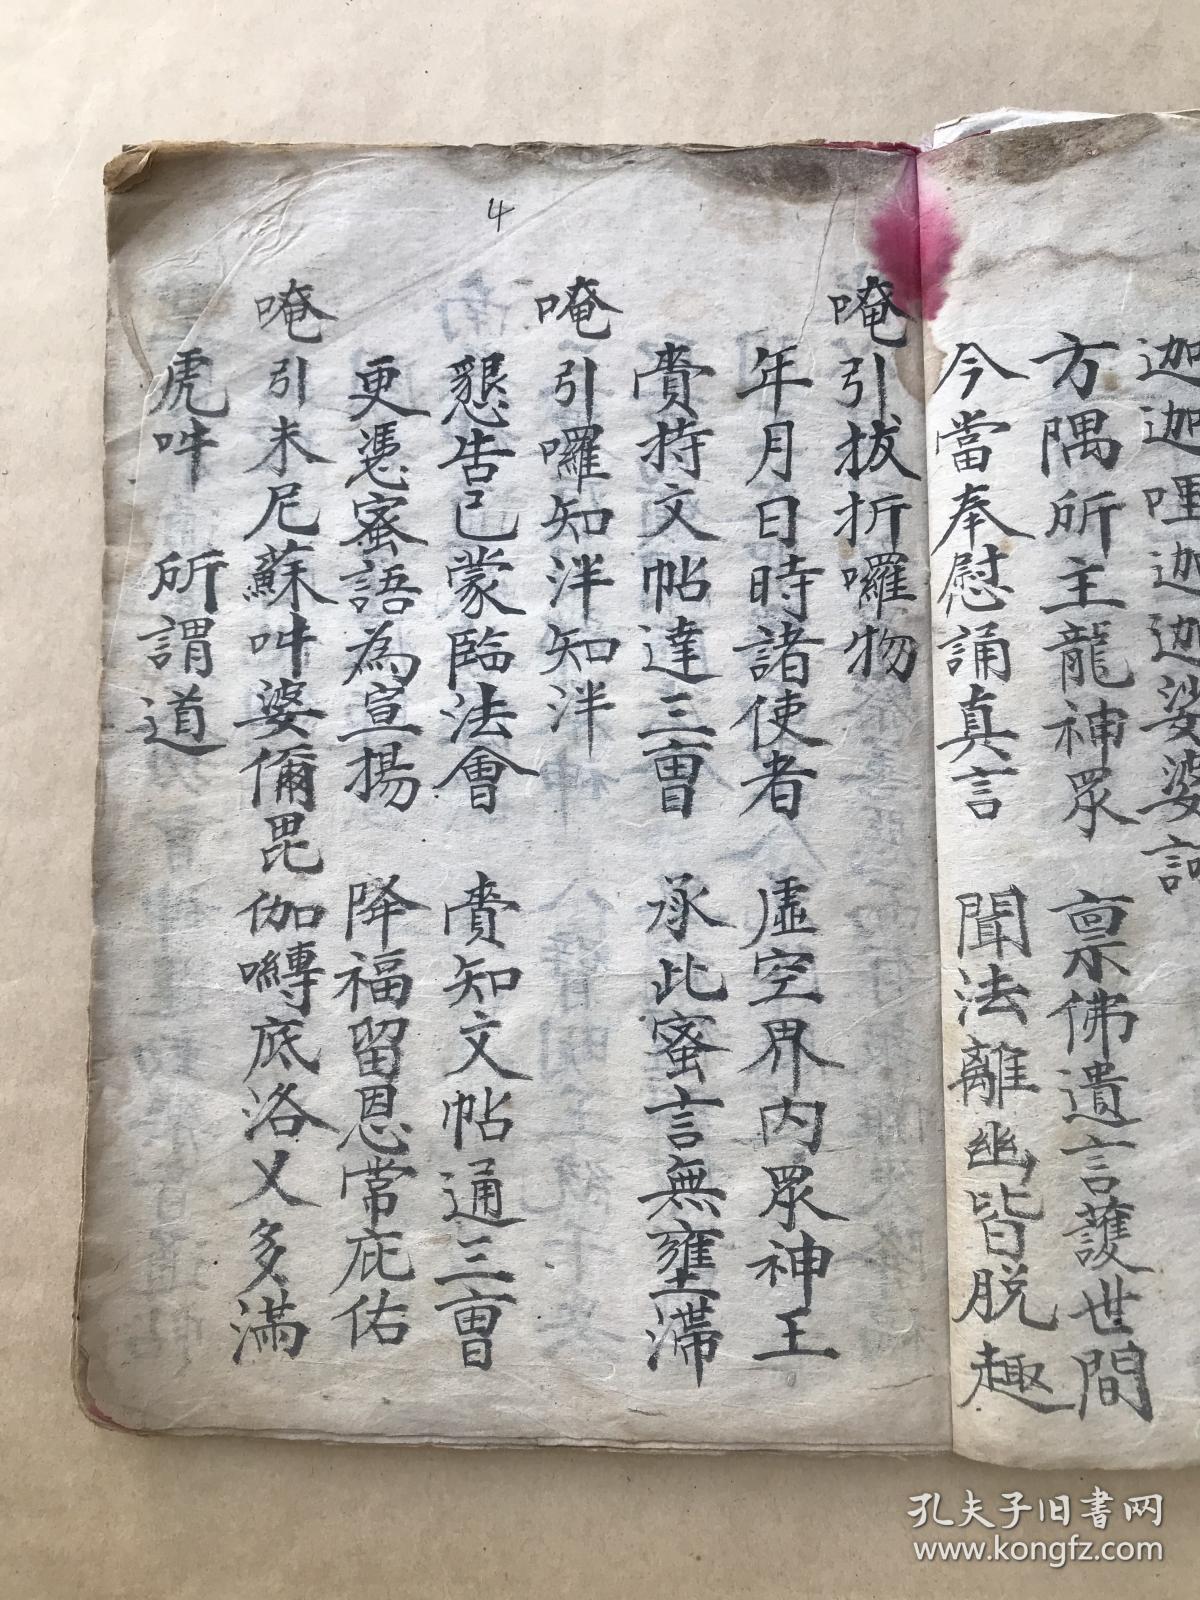 迦迦哩迦迦迦娑婆訶
方隅所主龍神眾　禀佛遺言護世間
今當奉慰誦真言　聞法離幽皆脱趣
唵引拔折囉物
年月日時諸使者　虛空界內眾神王
賫持文帖達三曹　承此蜜言無壅滯
唵引囉知泮知泮
懇告已蒙臨法會　賫知文帖通三曹
更憑蜜語為宣揚　降福留恩常庇佑
唵引未尼蘇吽婆儞毘伽嚩底洛乂多滿
虎吽　所謂道
4
孔夫子旧书网
www.kongfz.com